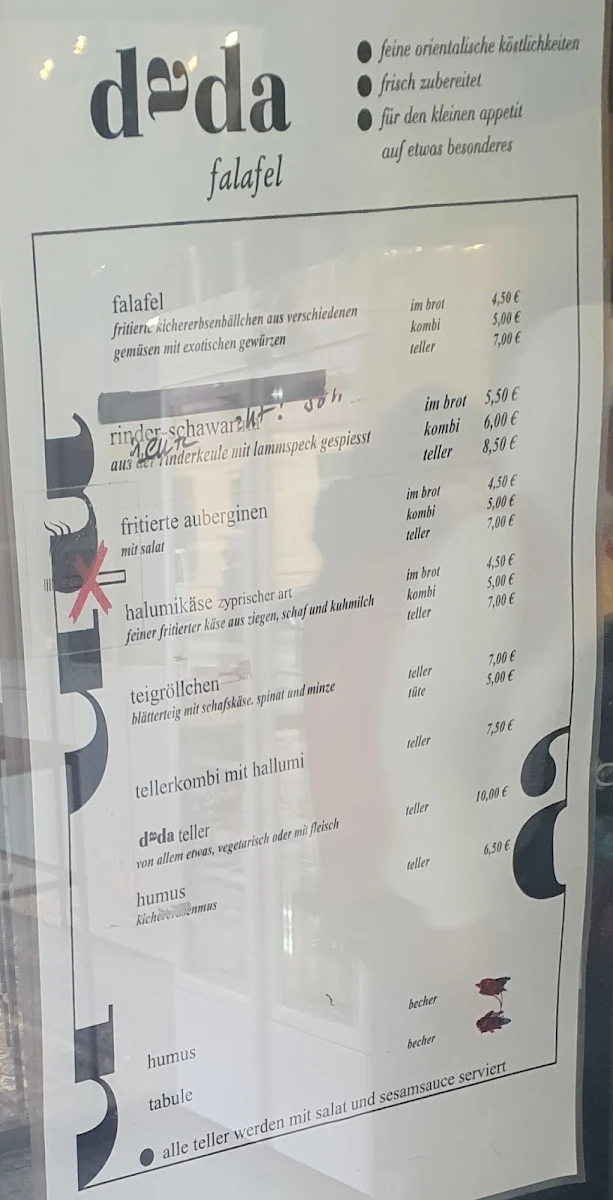 dada
falafel
● feine orientalische köstlichkeiten
● frisch zubereitet
● für den kleinen appetit
auf etwas besonderes
falafel
fritierte kichererbsenbällchen aus verschiedenen
gemüsen mit exotischen gewürzen
im brot 4,50 €
kombi 5,00 €
teller 7,00 €
rinder-schawar
aus der rinderkeule mit lammspeck gespiesst
im brot 5,50 €
kombi 6,00 €
teller 8,50 €
fritierte auberginen
mit salat
im brot 4,50 €
kombi 5,00 €
teller 7,00 €
halumikäse zyprischer art
feiner fritierter käse aus ziegen, schaf und kuhmilch
im brot 4,50 €
kombi 5,00 €
teller 7,00 €
teigröllchen
blätterteig mit schafskäse. spinat und minze
teller 7,00 €
tüte 5,00 €
tellerkombi mit hallumi
teller 7,50 €
dada teller
von allem etwas, vegetarisch oder mit fleisch
teller 10,00 €
humus
teller 6,50 €
humus
becher
tabule
becher
● alle teller werden mit salat und sesamsauce serviert